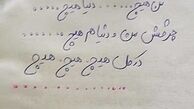 من هیچ ..... دنیا هیچ .....
چرخش من و دنیا هم هیچ
در کل هیچ، هیچ، هیچ